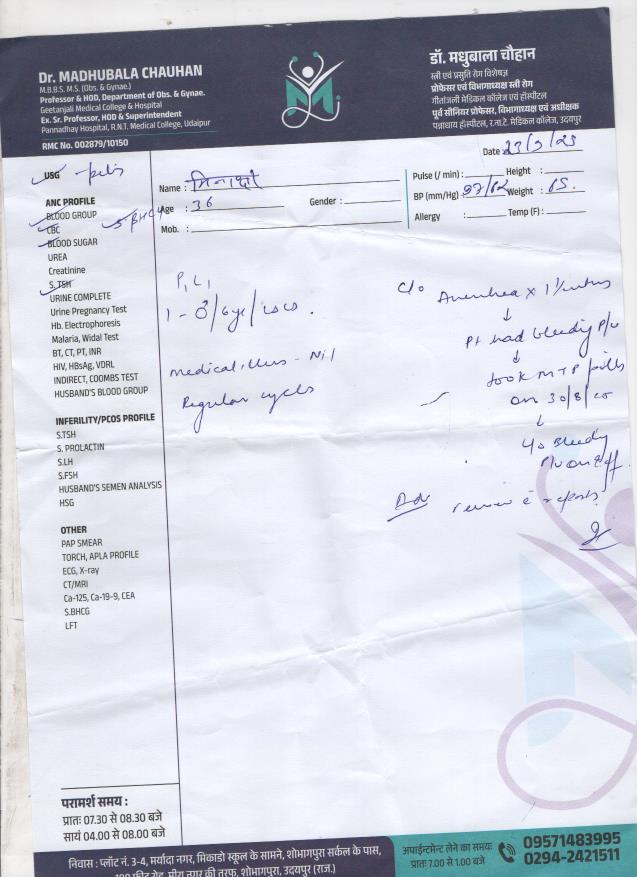 Dr. MADHUBALA CHAUHAN
M.B.B.S. M.S. (Obs. & Gynae.)
Professor & HOD, Department of Obs. & Gynae.
Geetanjali Medical College & Hospital
Ex. Sr. Professor, HOD & Superintendent
Pannadhay Hospital, R.N.T. Medical College, Udaipur
RMC No. 002879/10150
डॉ. मधुबाला चौहान
स्त्री एवं प्रसुति रोग विशेषज्ञ
प्रोफेसर एवं विभागाध्यक्ष स्त्री रोग
गीतांजली मेडिकल कॉलेज एवं हॉस्पीटल
पूर्व सीनियर प्रोफेसर, विभागाध्यक्ष एवं अधीक्षक
पन्नाधाय हॉस्पीटल, र.ना.टे. मेडिकल कॉलेज, उदयपुर
Date :
Name :
Age : 36 Gender :
Mob. :
Pulse (/ min) : Height :
BP (mm/Hg) Weight :
Allergy : Temp (F) :
USG
ANC PROFILE
BLOOD GROUP
CBC
BLOOD SUGAR
UREA
Creatinine
S. TSH
URINE COMPLETE
Urine Pregnancy Test
Hb. Electrophoresis
Malaria, Widal Test
BT, CT, PT, INR
HIV, HBsAg, VDRL
INDIRECT, COOMBS TEST
HUSBAND'S BLOOD GROUP
INFERILITY/PCOS PROFILE
S.TSH
S. PROLACTIN
S.LH
S.FSH
HUSBAND'S SEMEN ANALYSIS
HSG
OTHER
PAP SMEAR
TORCH, APLA PROFILE
ECG, X-ray
CT/MRI
Ca-125, Ca-19-9, CEA
S.BHCG
LFT
P1 L1
Medical illness - Nil
Regular cycles
c/o
↓
Pt had bleeding P/V
↓
took MTP pills
on 30/8/25
↓
Bleeding
P/V on & off
Adv
review c reports
परामर्श समय :
प्रातः 07.30 से 08.30 बजे
सायं 04.00 से 08.00 बजे
निवास : प्लॉट नं. 3-4, मर्यादा नगर, मिकाडो स्कूल के सामने, शोभागपुरा सर्कल के पास,
100 फीट रोड, मीरा नगर की तरफ, शोभागपुरा, उदयपुर (राज.)
अपाईन्टमेन्ट लेने का समयः
प्रातः 7.00 से 1.00 बजे
09571483995
0294-2421511